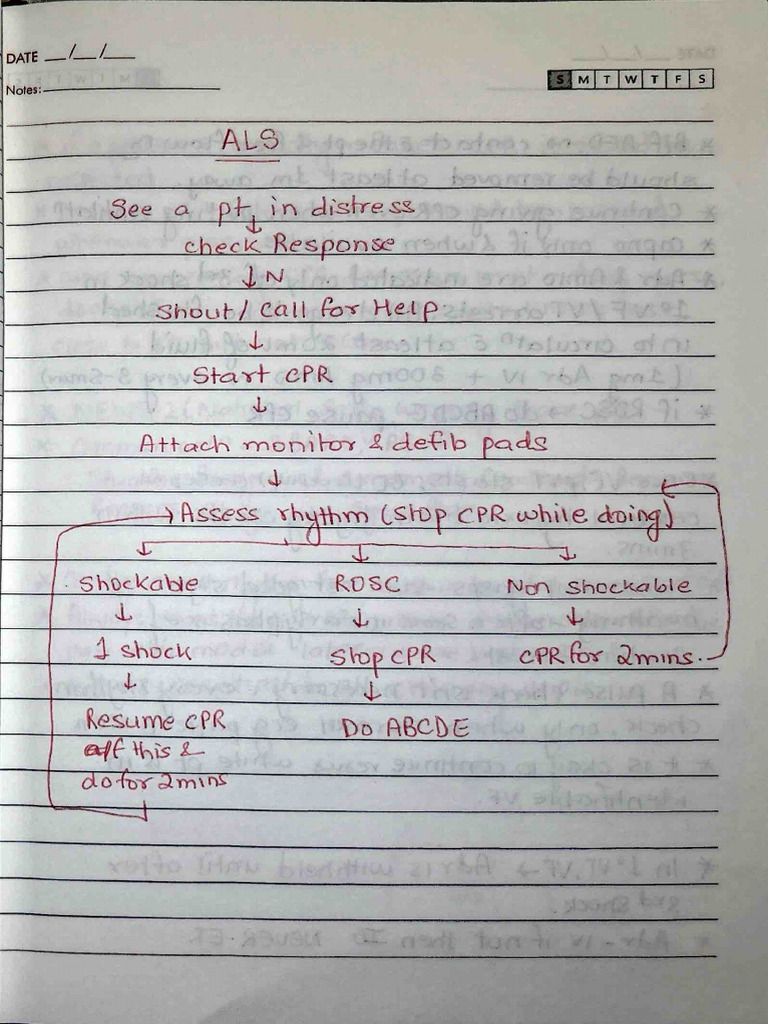 DATE __/__/__
Notes:
S M T W T F S
ALS
See a pt in distress
↓
check Response
↓ N
Shout / Call for Help.
↓
Start CPR
↓
Attach monitor & defib pads
↓
→ Assess rhythm (stop CPR while doing)
↓ ↓ ↓
Shockable ROSC Non shockable
↓ ↓ ↓
1 shock Stop CPR CPR for 2mins.
↓ ↓
Resume CPR Do ABCDE
aff this &
do for 2mins